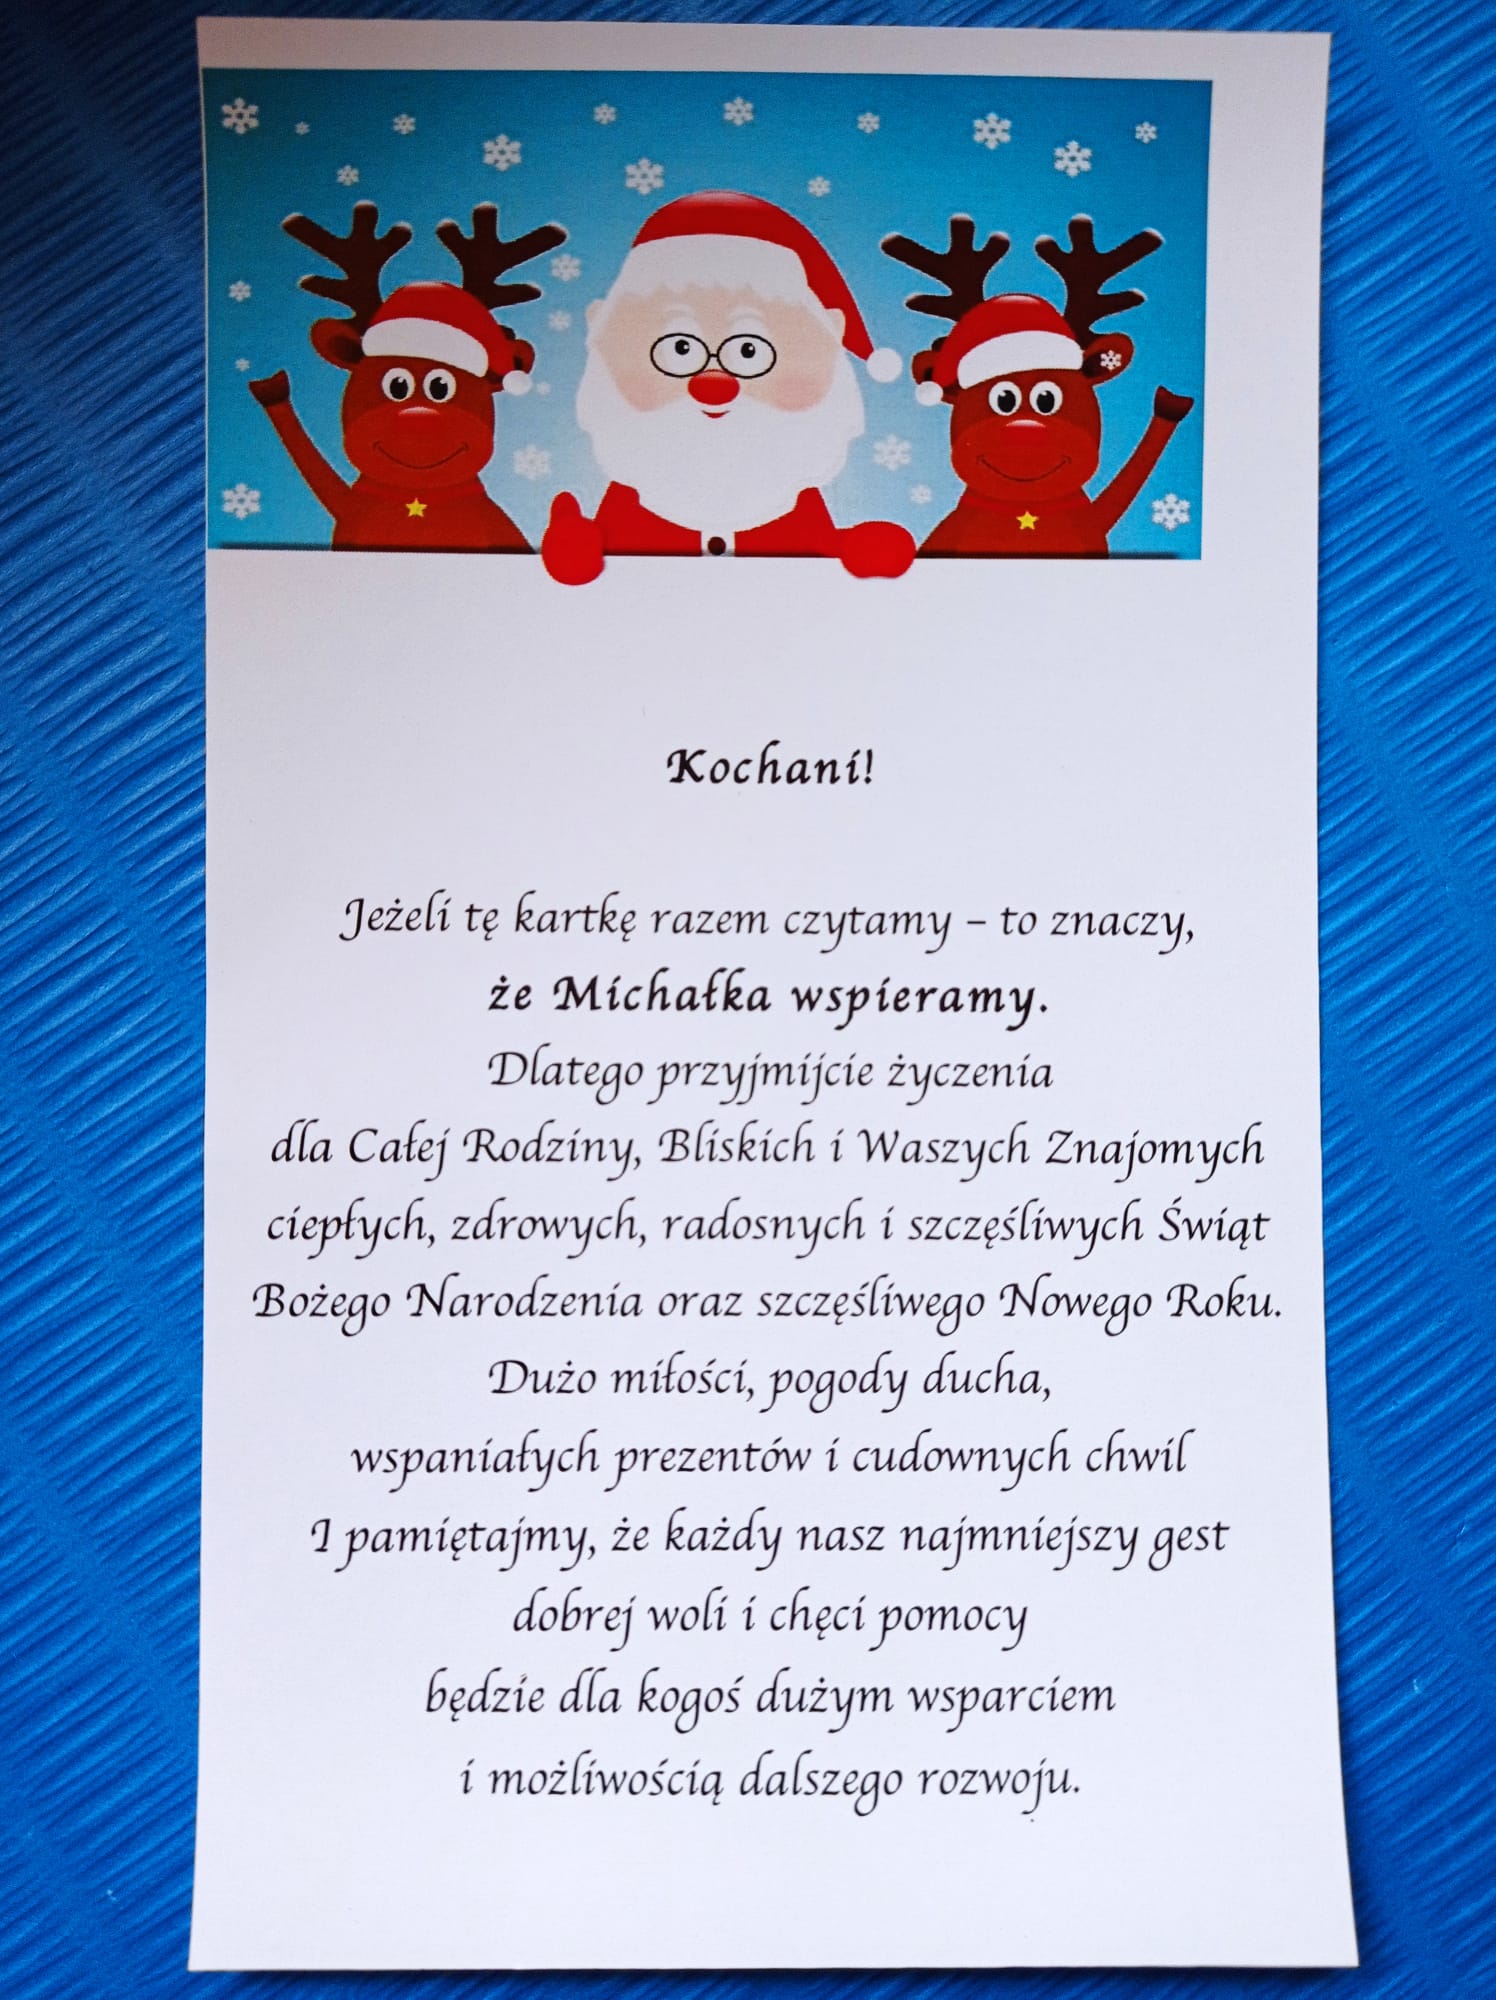 Kochani!
Jeżeli tę kartkę razem czytamy – to znaczy,
że Michałka wspieramy.
Dlatego przyjmijcie życzenia
dla Całej Rodziny, Bliskich i Waszych Znajomych
ciepłych, zdrowych, radosnych i szczęśliwych Świąt
Bożego Narodzenia oraz szczęśliwego Nowego Roku.
Dużo miłości, pogody ducha,
wspaniałych prezentów i cudownych chwil
I pamiętajmy, że każdy nasz najmniejszy gest
dobrej woli i chęci pomocy
będzie dla kogoś dużym wsparciem
i możliwością dalszego rozwoju.